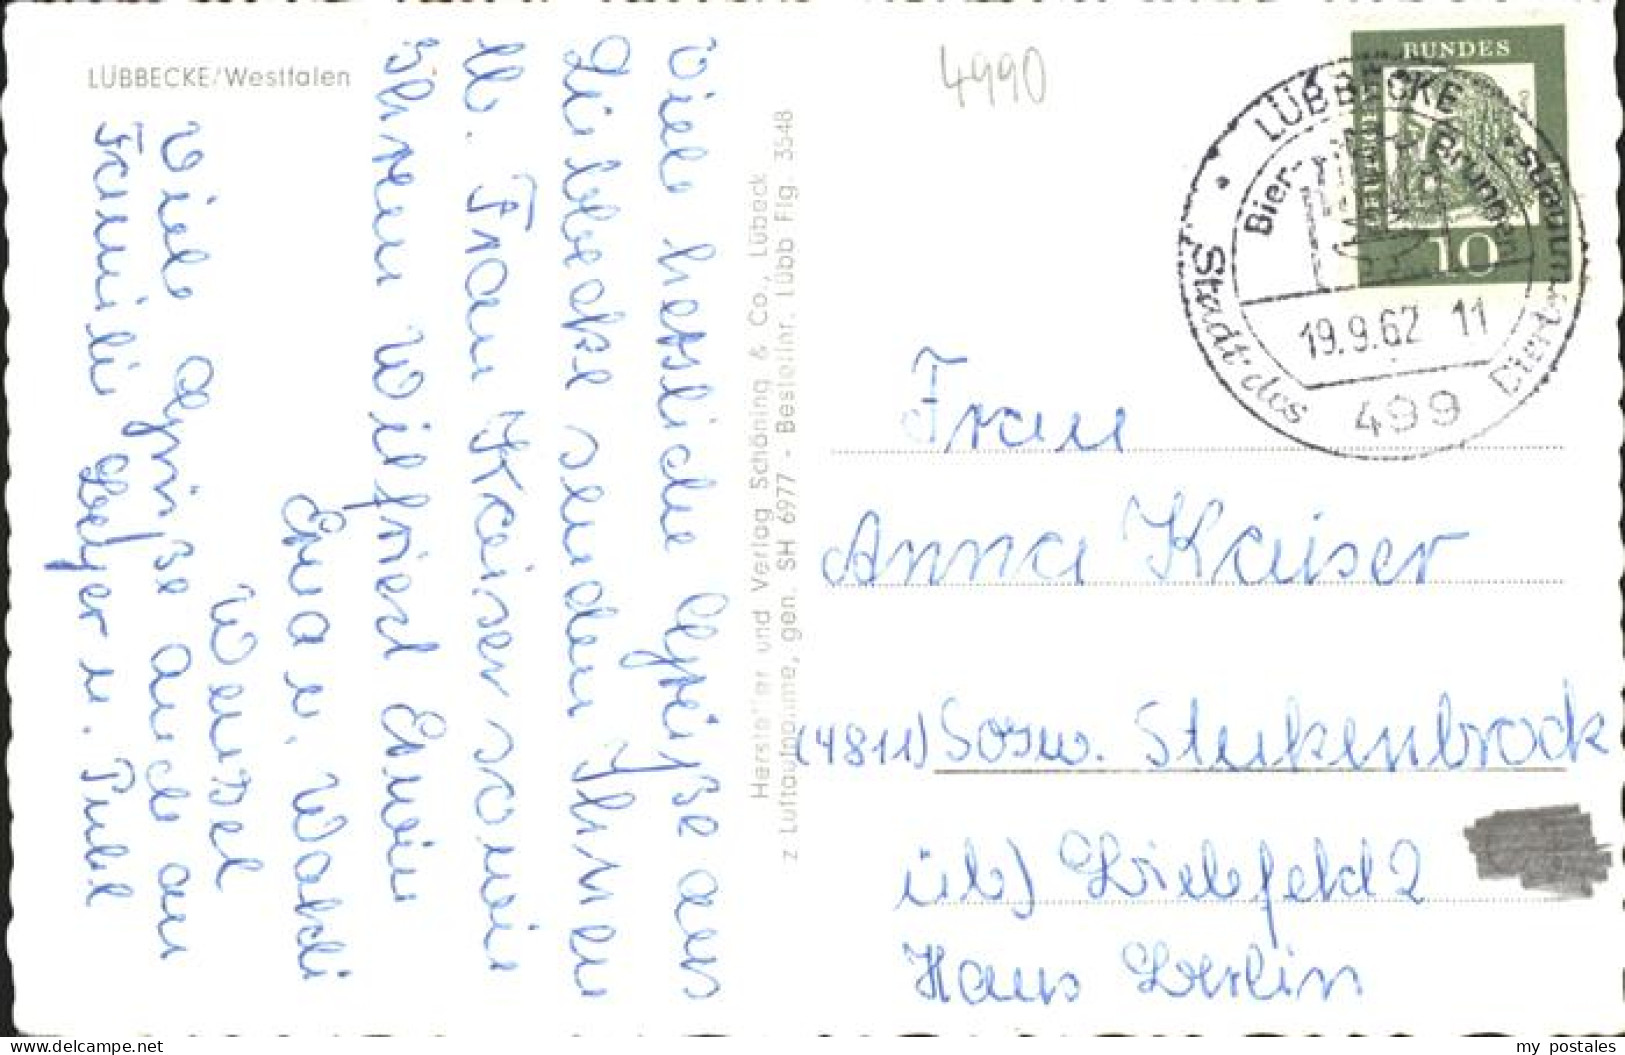 LÜBBECKE/Westfalen
Viele herzliche Grüße aus
Lübbecke senden Ihnen
lb. Frau Kaiser sowie
Ihrem Wilfried Erwin
Erna u. Waldi
Wenzel
Viele Grüße auch an
Familie Getzer u. Pukel
Hersteller und Verlag Schöning & Co., Lübeck
z Luftaufnahme, gen. SH 6977 - Bestellnr. Lübb Flg. 3548
4990
BUNDES
10
LÜBBECKE
Bier-Brunnen
19.9.62 11
Stadt des Bierbrunnens
499
Frau
Anna Kaiser
(4811) Sozw. Stukenbrock
üb) Bielefeld 2
Haus Berlin
www.delcampe.net
my_postales